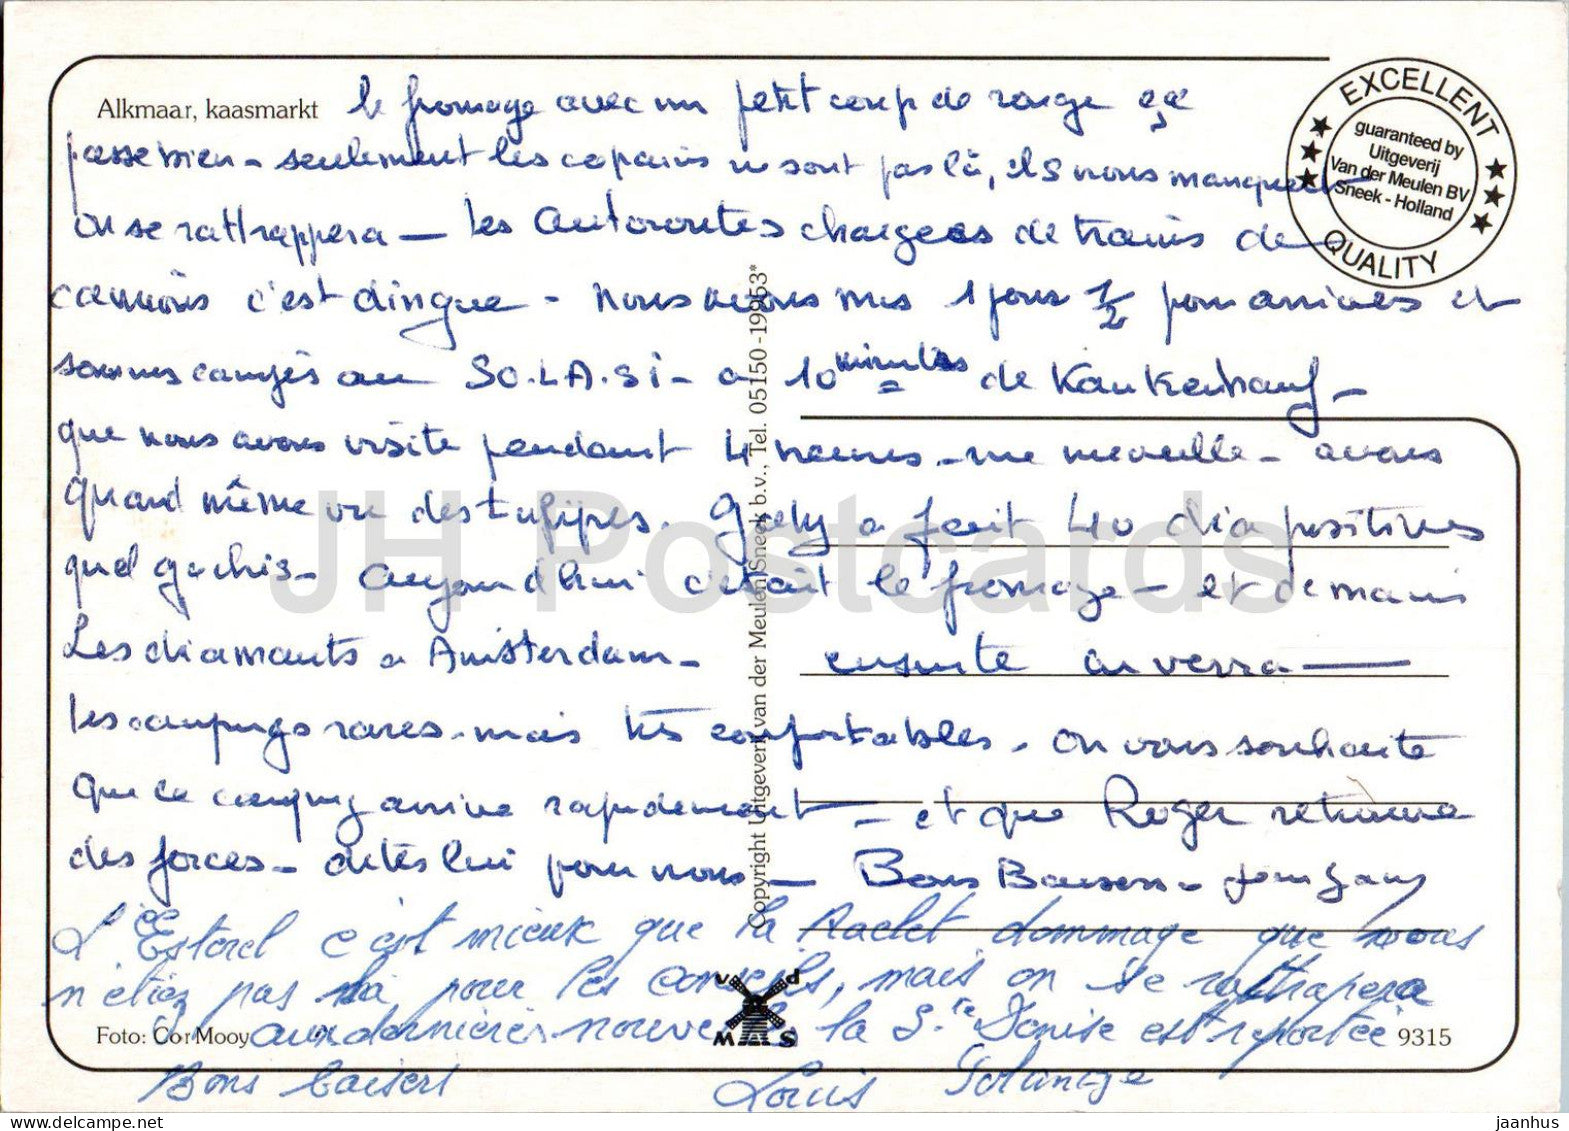 Alkmaar, kaasmarkt
le fromage avec un petit coup de rouge ça
passe bien - seulement les copains ne sont pas là, ils nous manquent
on se rattrappera - les autoroutes chargees de trains de
camions c'est dingue - nous avons mis 1 jour 1/2 pour arriver et
sommes campés au SO.LA.SI - a 10 minutes de Kaukenhauf -
que nous avons visité pendant 4 heures - une merveille - avons
quand même vu des tulipes. Gaby a fait 40 diapositives
quel gachis - aujourd'hui c'était le fromage - et demain
Les diamants a Amsterdam - ensuite on verra -
les campings rares - mais très confortables. on vous souhaite
que ce camping arrive rapidement - et que Roger retrouve
des forces - dites lui pour nous - Bons Baisers -
L'Estorel c'est mieux que la dommage que vous
n'étiez pas là pour les conseils, mais on se rattrapera
aux dernières nouvelles la Ste Denise est reportée
Bons baisers Louis Solange
EXCELLENT QUALITY
guaranteed by
Uitgeverij
Van der Meulen BV
Sneek - Holland
Copyright Uitgeverij van der Meulen Sneek b.v., Tel. 05150-19963*
v d
M S
Foto: Cor Mooy
9315
JH Postcards
jaanhus